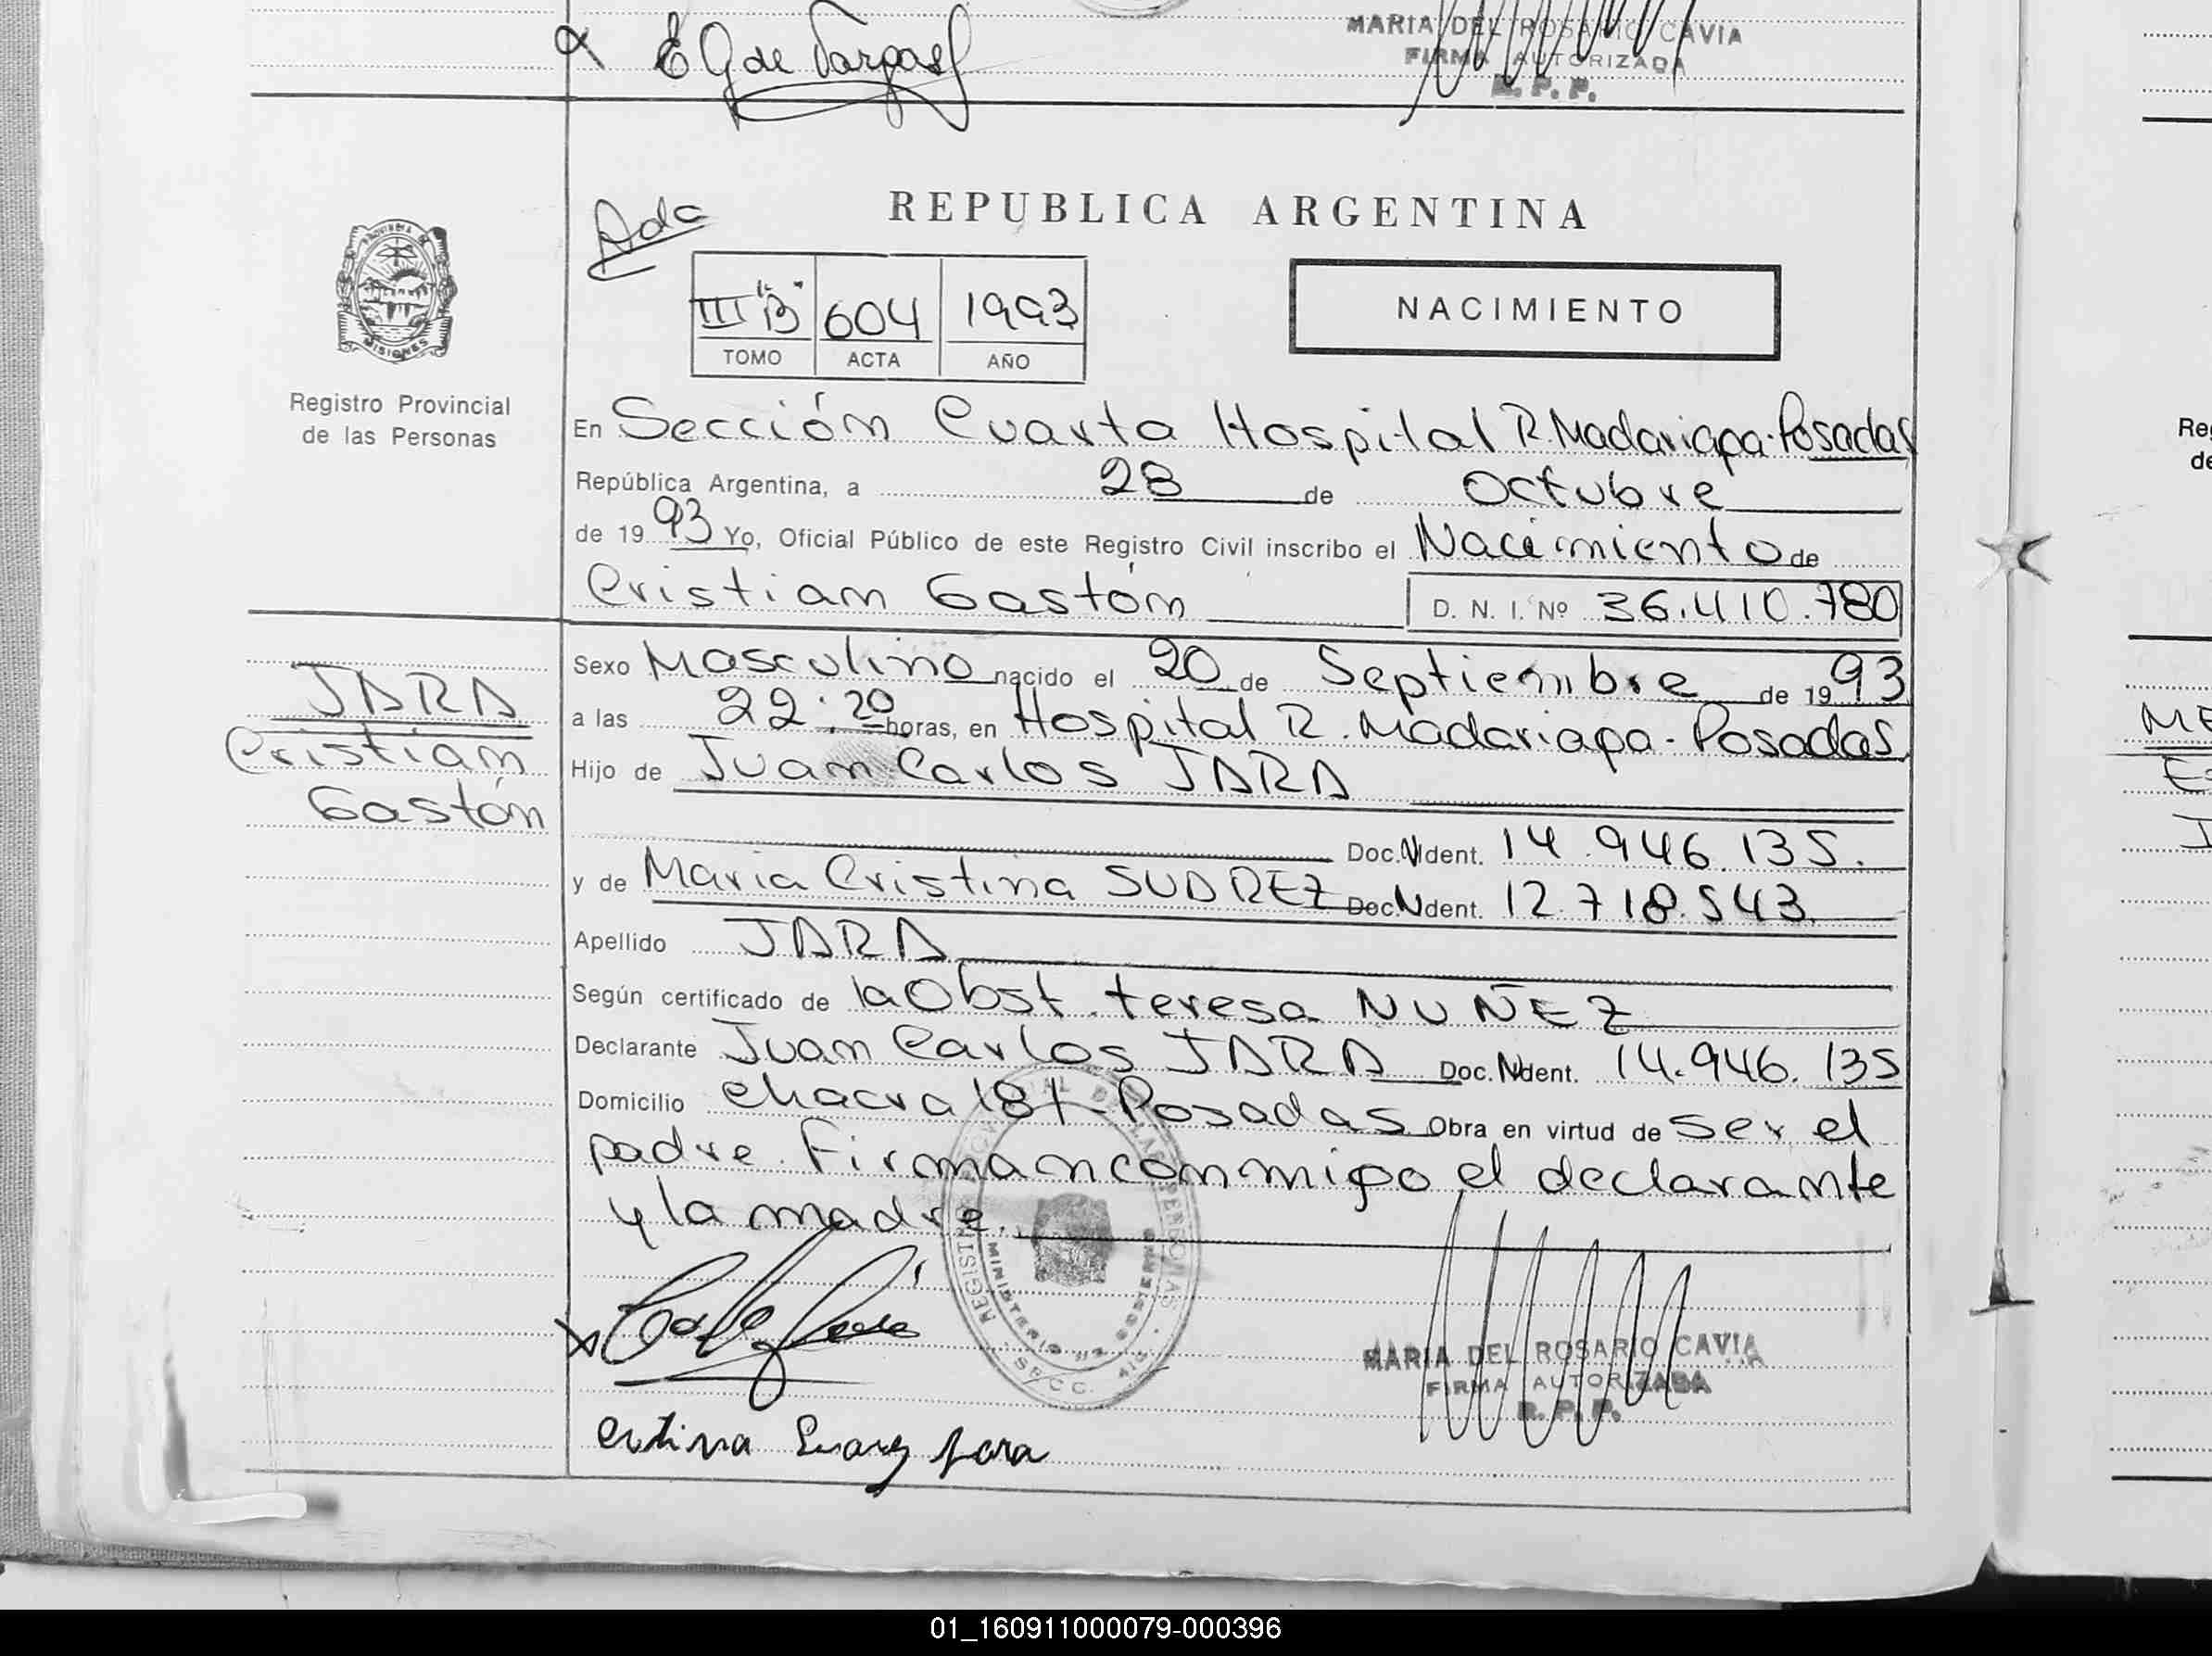 E G de Vargas
MARIA DEL ROSARIO CAVIA
FIRMA AUTORIZADA
R. P. P.
PROVINCIA DE
MISIONES
Registro Provincial
de las Personas
REPUBLICA ARGENTINA
III "B" 604 1993
TOMO ACTA AÑO
NACIMIENTO
En Sección Cuarta Hospital R. Madariaga - Posadas
República Argentina, a 28 de Octubre
de 1993 Yo, Oficial Público de este Registro Civil inscribo el Nacimiento de
Cristian Gastón D. N. I. Nº 36.410.780
JARA
Cristian
Gastón
Sexo Masculino nacido el 20 de Septiembre de 1993
a las 22:20 horas, en Hospital R. Madariaga - Posadas
Hijo de Juan Carlos JARA
Doc. N Ident. 14.946.135.
y de Maria Cristina SUAREZ Doc. N Ident. 12.718.543.
Apellido JARA
Según certificado de la Obst. teresa NUÑEZ
Declarante Juan Carlos JARA Doc. N Ident. 14.946.135
Domicilio chacra 181 - Posadas Obra en virtud de ser el
padre. Firman conmigo el declarante
y la madre.
REGISTRO PROVINCIAL DE LAS PERSONAS
MINISTERIO DE GOBIERNO
MARIA DEL ROSARIO CAVIA
FIRMA AUTORIZADA
R. P. P.
Suarez Jara
Re
de
ME
01_160911000079-000396